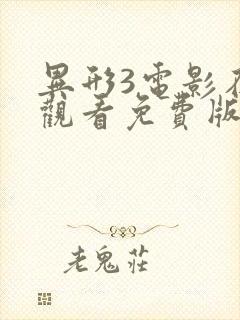 異形3電影在
觀看免費版
老鬼莊